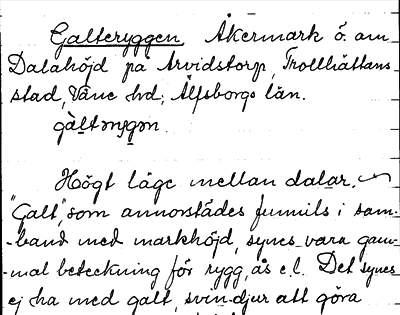 Galteryggen Åkermark ö. om
Dalahöjd på Arvidstorp, Trollhättans
stad, Väne hd, Älfsborgs län.
gàltərygən.
Högt läge mellan dalar.
"Galt", som annorstädes funnits i sam-
-band med markhöjd, synes vara gam-
-mal beteckning för rygg, ås e.l. Det synes
ej ha med galt, svindjur att göra